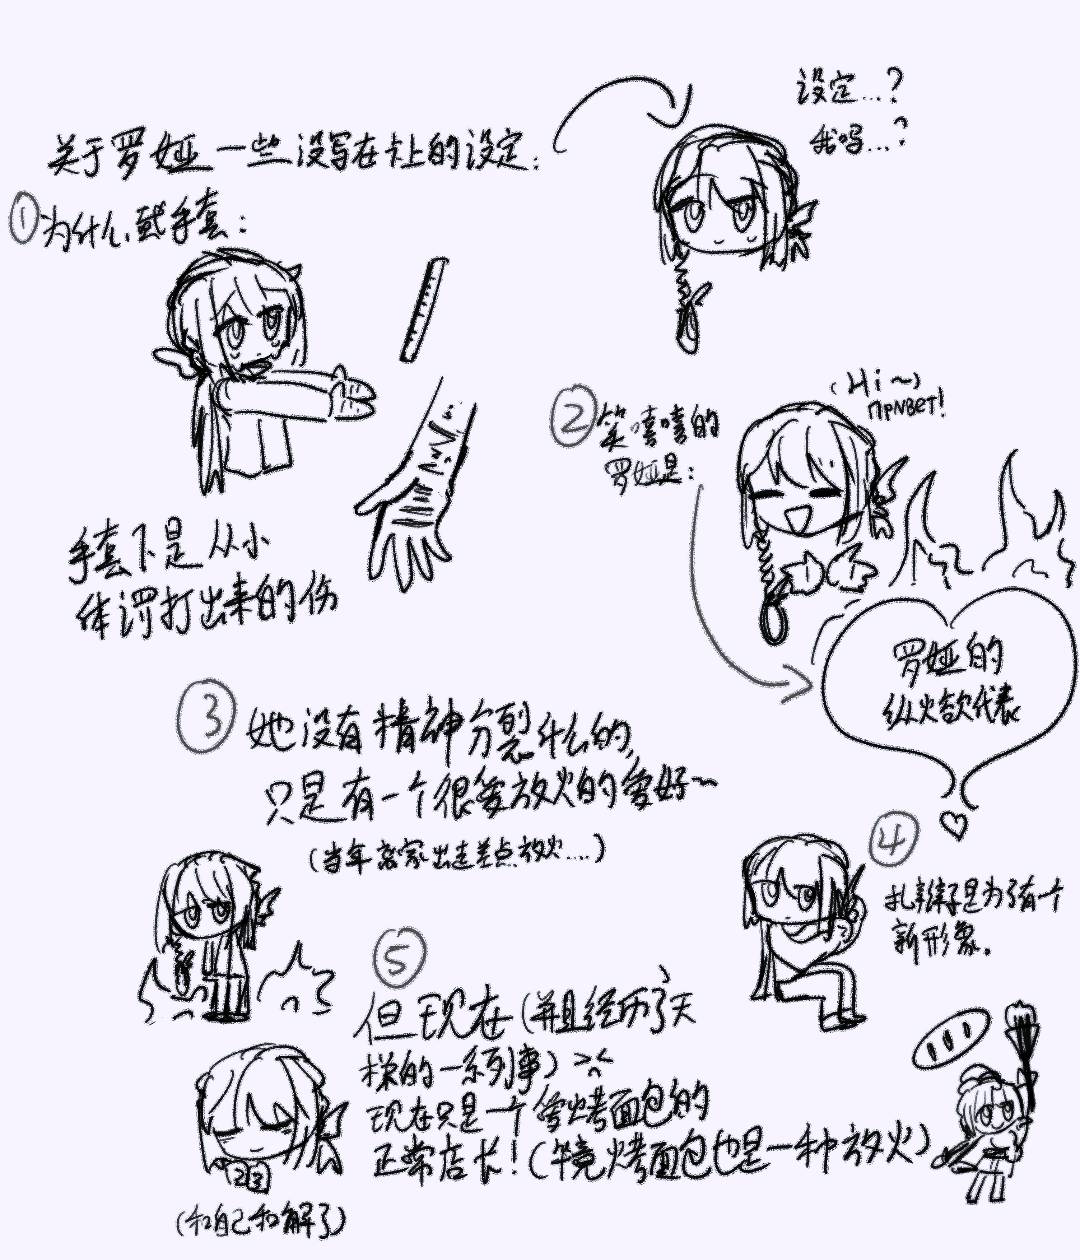 关于罗娅一些没写在卡上的设定:
设定...?
我吗...?
①为什么戴手套:
手套下是从小
体罚打出来的伤
②笑嘻嘻的
罗娅是:
(Hi~)
Привет!
罗娅的
纵火款代表
③她没有精神分裂什么的,
只是有一个很爱放火的爱好~
(当年离家出走差点放火...)
④
扎辫子是为了有个
新形象。
⑤
但现在(并且经历了天
梯的一系列事)><
现在只是一个爱烤面包的
正常店长!(毕竟烤面包也是一种放火)
(和自己和解了)